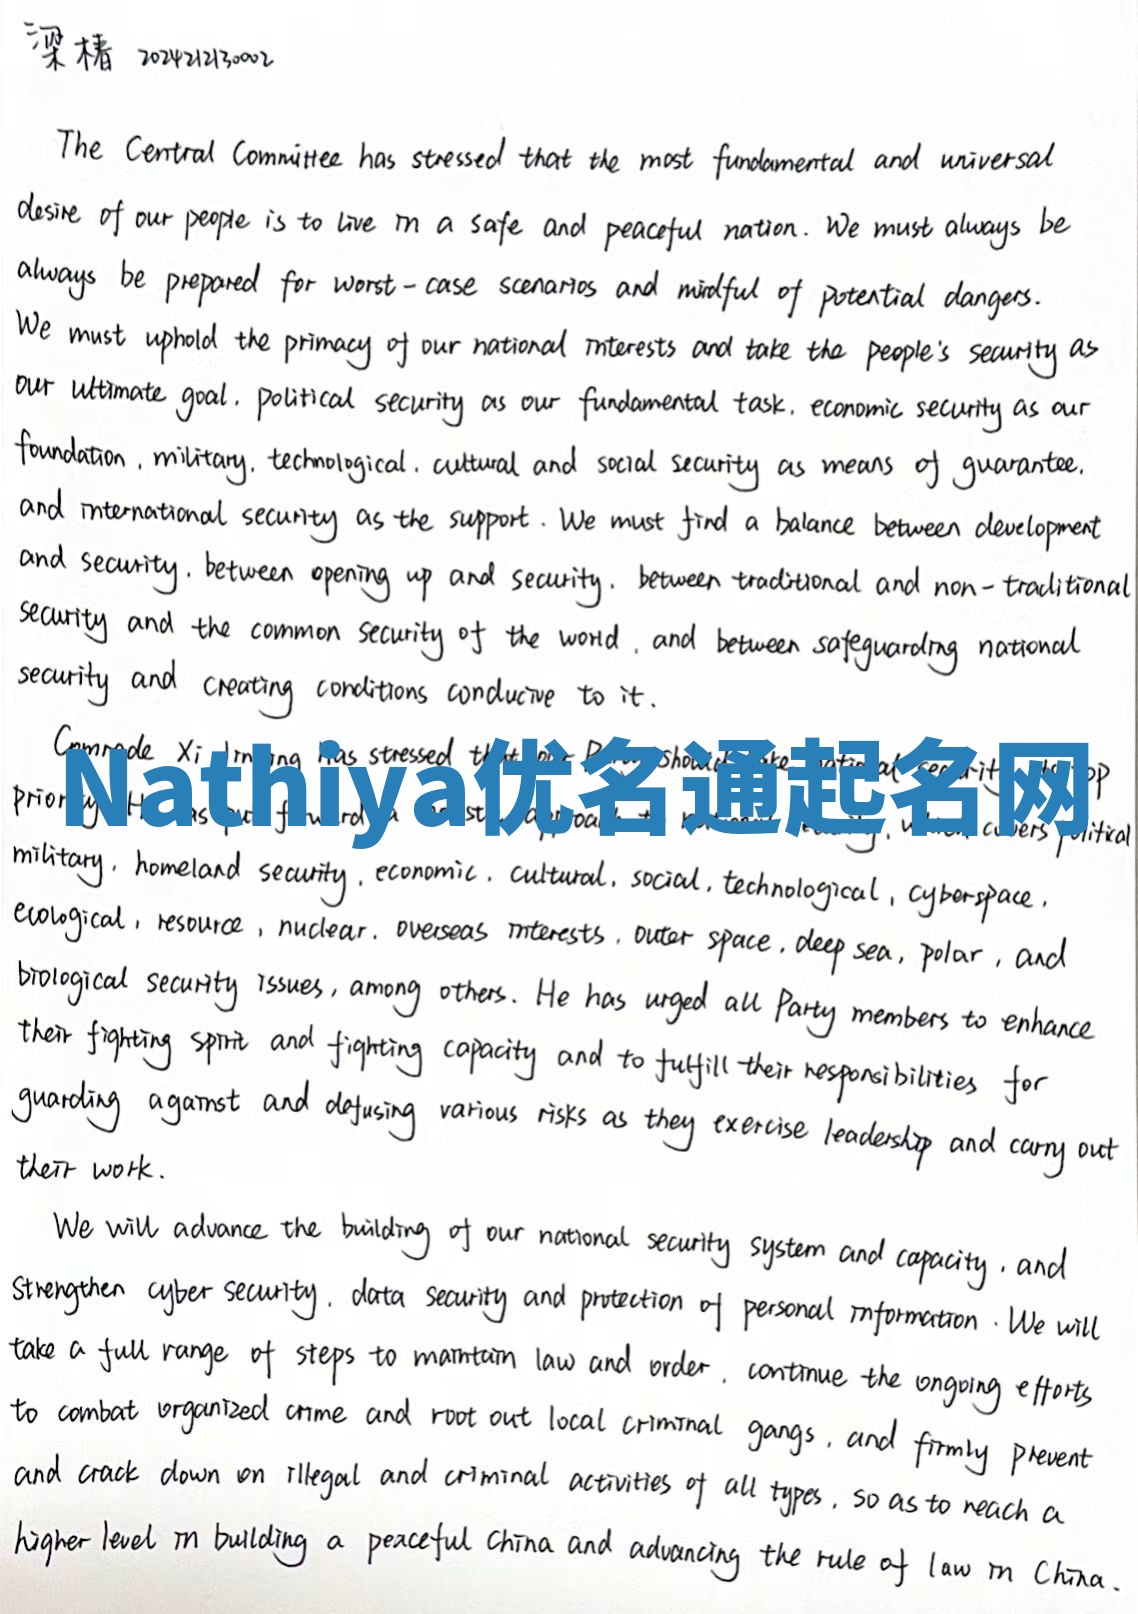 梁椿 2024212130002
The Central Committee has stressed that the most fundamental and universal
desire of our people is to live in a safe and peaceful nation. We must always be
always be prepared for worst-case scenarios and mindful of potential dangers.
We must uphold the primacy of our national interests and take the people's security as
our ultimate goal, political security as our fundamental task, economic security as our
foundation, military, technological, cultural and social security as means of guarantee,
and international security as the support. We must find a balance between development
and security, between opening up and security, between traditional and non-traditional
security and the common security of the world, and between safeguarding national
security and creating conditions conducive to it.
Comrade Xi Jinping has stressed that our Party should take national security its top
Nathiya优名通起名网
priority. He has put forward a holistic approach to national security, which covers political
military, homeland security, economic, cultural, social, technological, cyberspace,
ecological, resource, nuclear, overseas interests, outer space, deep sea, polar, and
biological security issues, among others. He has urged all Party members to enhance
their fighting spirit and fighting capacity and to fulfill their responsibilities for
guarding against and defusing various risks as they exercise leadership and carry out
their work.
We will advance the building of our national security system and capacity, and
strengthen cyber security, data security and protection of personal information. We will
take a full range of steps to maintain law and order, continue the ongoing efforts
to combat organized crime and root out local criminal gangs, and firmly prevent
and crack down on illegal and criminal activities of all types, so as to reach a
higher level in building a peaceful China and advancing the rule of law in China.